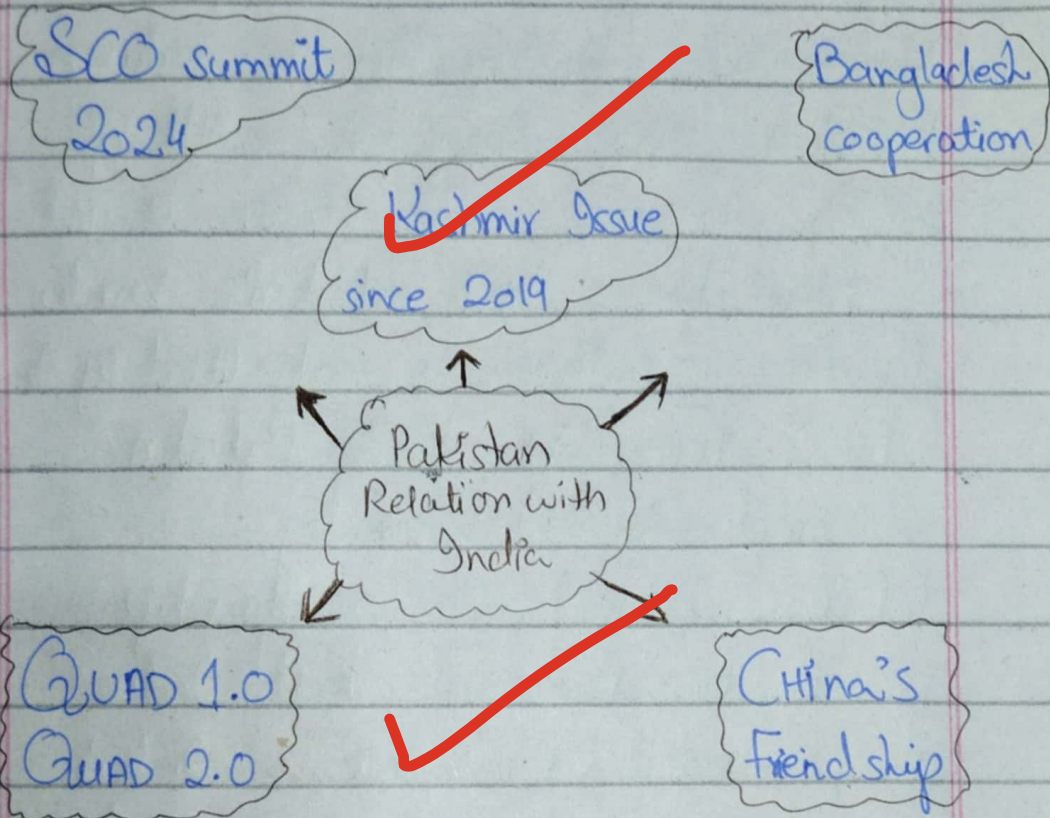 SCO summit
2024
Bangladesh
cooperation
Kashmir Issue
since 2019
Pakistan
Relation with
India
QUAD 1.0
QUAD 2.0
CHina's
Friendship